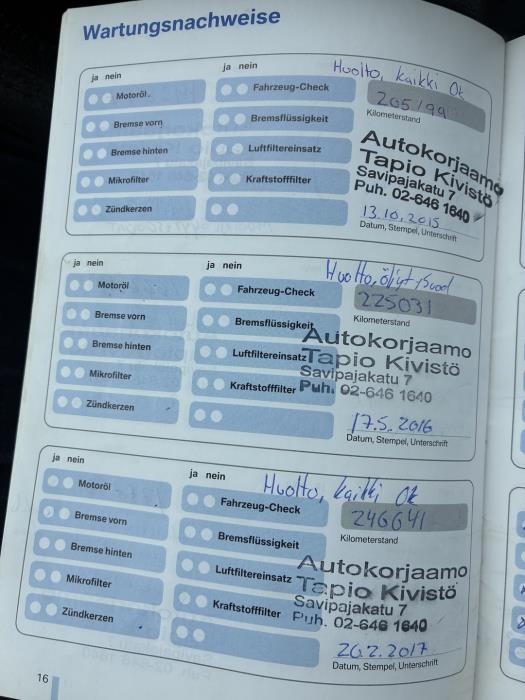 Wartungsnachweise
Huolto, kaikki Ok
ja nein
ja nein
Motoröl
Fahrzeug-Check
205199
Kilometerstand
Bremse vorn
Bremsflüssigkeit
Autokorjaamo
Bremse hinten
Luftfiltereinsatz
Tapio Kivistö
Savipajakatu 7
Mikrofilter
Kraftstofffilter
Puh. 02-646 1640
Zündkerzen
13.10.2015
Datum, Stempel, Unterschrift
ja nein
ja nein
Huolto, öljyt, Suod
Motoröl
Fahrzeug-Check
225031
Kilometerstand
Bremse vorn
Bremsflüssigkeit
Autokorjaamo
Bremse hinten
Luftfiltereinsatz
Tapio Kivistö
Savipajakatu 7
Mikrofilter
Kraftstofffilter
Puh. 02-646 1640
Zündkerzen
17.5.2016
Datum, Stempel, Unterschrift
ja nein
ja nein
Huolto, kaikki Ok
Motoröl
Fahrzeug-Check
246641
Kilometerstand
Bremse vorn
Bremsflüssigkeit
Autokorjaamo
Bremse hinten
Luftfiltereinsatz
Tapio Kivistö
Savipajakatu 7
Mikrofilter
Kraftstofffilter
Puh. 02-646 1640
Zündkerzen
20.2.2017
Datum, Stempel, Unterschrift
16